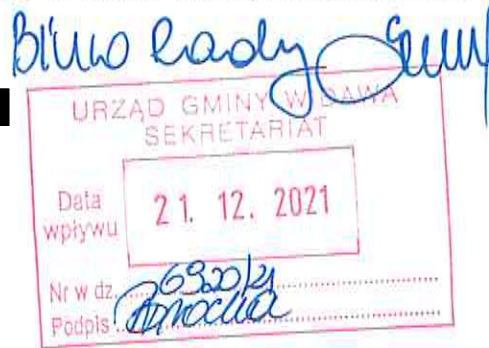 Biuro Rady Gminy
URZĄD GMINY WIDAWA
SEKRETARIAT
Data
wpływu
21. 12. 2021
Nr w dz. 6920/21
Podpis